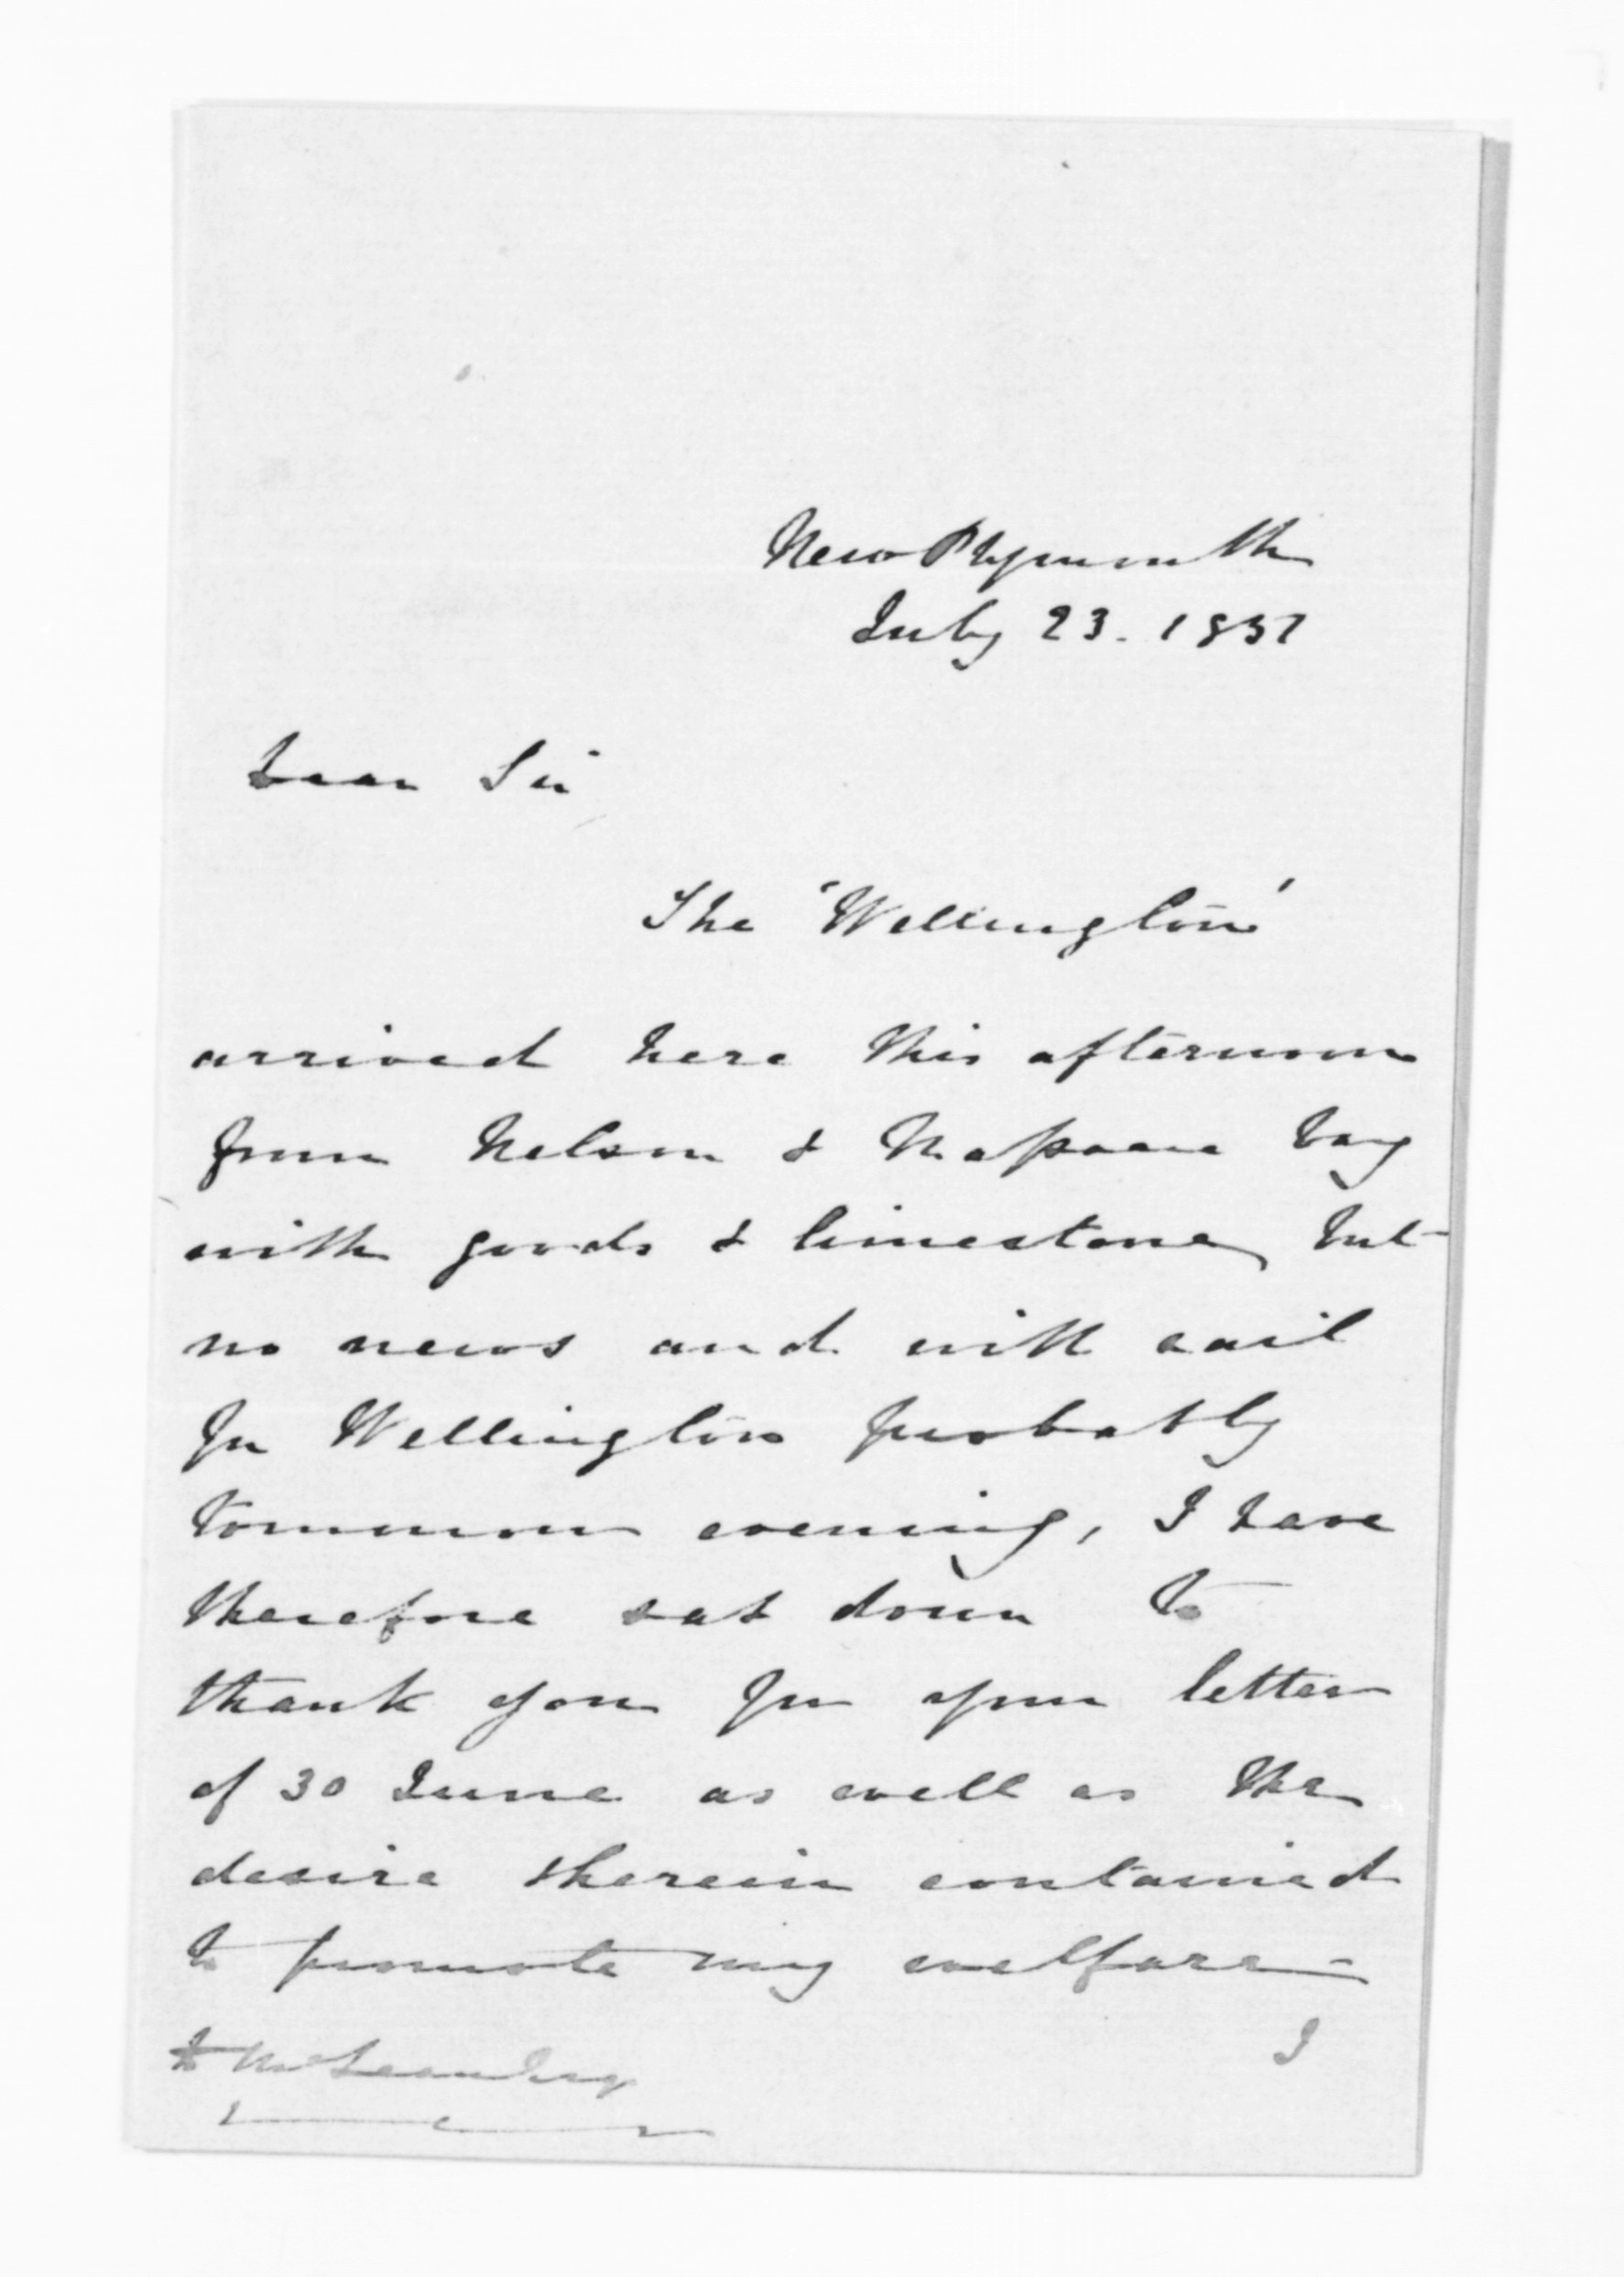 New Plymouth
July 23. 1851
Dear Sir
The 'Wellington'
arrived here this afternoon
from Nelson & Massacre bay
with goods & limestone, but
no news and will sail
for Wellington probably
tomorrow evening, I have
therefore sat down to
thank you for your letter
of 30 June as well as the
desire therein contained
to promote my welfare -
I
McLean Esqr